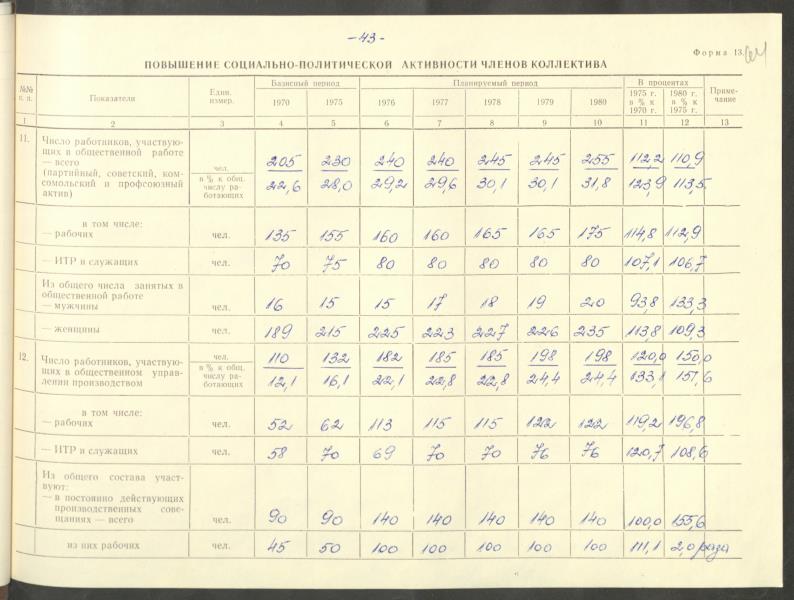 -43-
Форма 13.
64
ПОВЫШЕНИЕ СОЦИАЛЬНО-ПОЛИТИЧЕСКОЙ АКТИВНОСТИ ЧЛЕНОВ КОЛЛЕКТИВА
№№ п. п. Показатели Един. измер. Базисный период Планируемый период В процентах Приме-чание
1970 1975 1976 1977 1978 1979 1980 1975 г. в % к 1970 г. 1980 г. в % к 1975 г.
1 2 3 4 5 6 7 8 9 10 11 12 13
11. Число работников, участвую-
щих в общественной работе
— всего чел. 205 230 240 240 245 245 255 112,2 110,9
(партийный, советский, ком-
сомольский и профсоюзный
актив) в % к общ. числу ра-ботающих 22,6 28,0 29,2 29,6 30,1 30,1 31,8 123,9 113,5
в том числе:
— рабочих чел. 135 155 160 160 165 165 175 114,8 112,9
— ИТР и служащих чел. 70 75 80 80 80 80 80 107,1 106,7
Из общего числа занятых в
общественной работе
— мужчины чел. 16 15 15 17 18 19 20 93,8 133,3
— женщины чел. 189 215 225 223 227 226 235 113,8 109,3
12. Число работников, участвую-
щих в общественном управ-
лении производством чел. 110 132 182 185 185 198 198 120,0 150,0
в % к общ. числу ра-ботающих 12,1 16,1 22,1 22,8 22,8 24,4 24,4 133,1 151,6
в том числе:
— рабочих чел. 52 62 113 115 115 122 122 119,2 196,8
— ИТР и служащих чел. 58 70 69 70 70 76 76 120,7 108,6
Из общего состава участ-
вуют:
— в постоянно действующих
производственных сове-
щаниях — всего чел. 90 90 140 140 140 140 140 100,0 155,6
из них рабочих чел. 45 50 100 100 100 100 100 111,1 2,0 раза